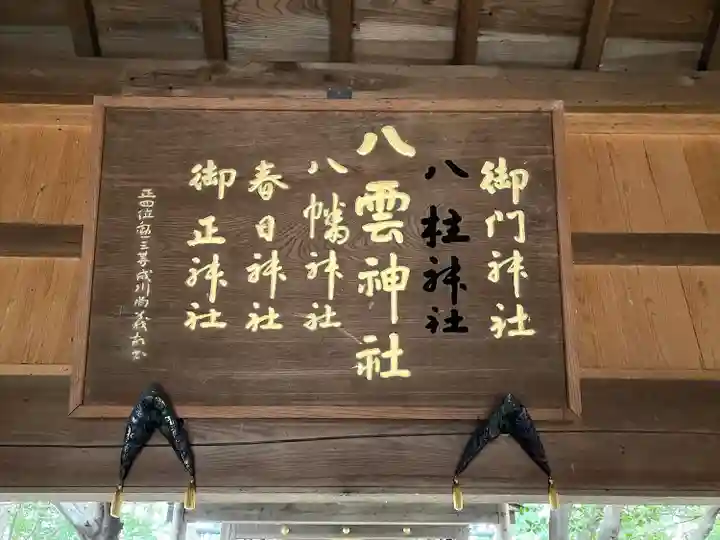 御門神社
八柱神社
八雲神社
八幡神社
春日神社
御正神社
正四位勲三等成川尚義書